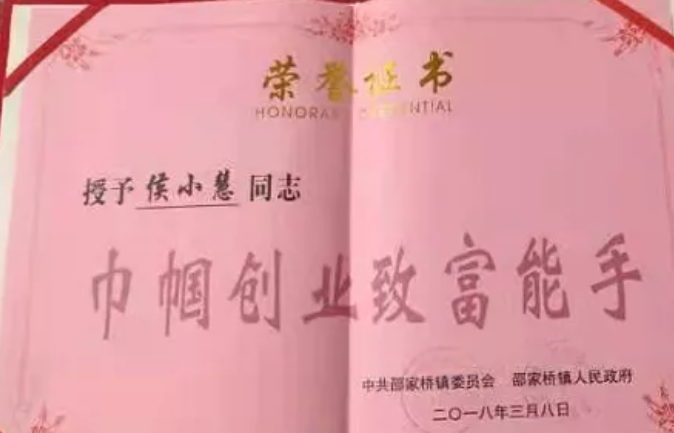 荣誉证书
HONORARY CREDENTIAL
授予侯小慧同志
巾帼创业致富能手
中共邵家桥镇委员会 邵家桥镇人民政府
二〇一八年三月八日